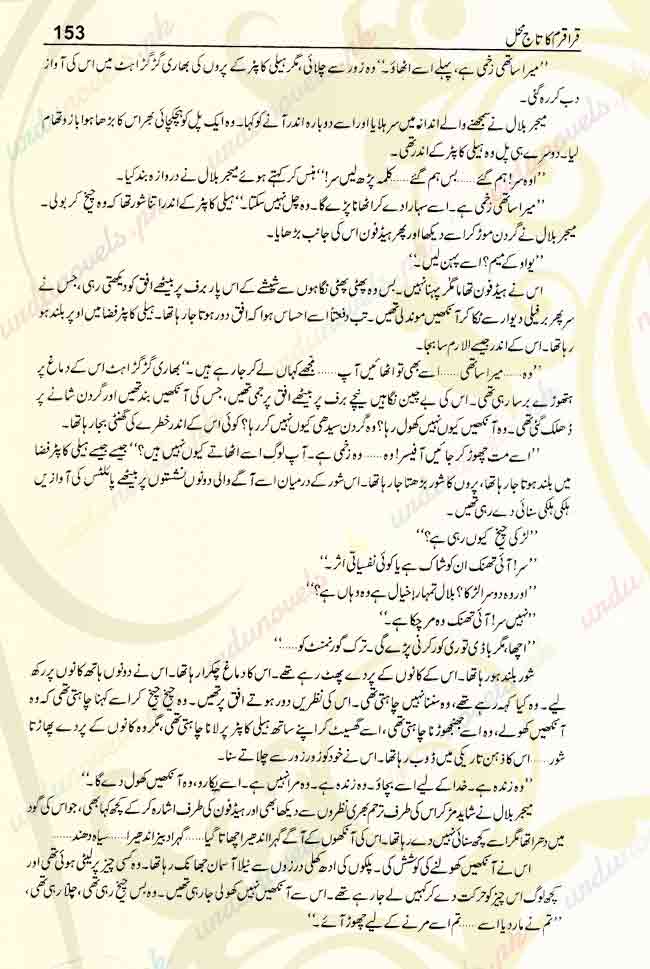 153 قراقرم کا تاج محل
’’میرا ساتھی زخمی ہے، پہلے اسے اٹھاؤ۔‘‘ وہ زور سے چلائی، مگر ہیلی کاپٹر کے پروں کی بھاری گڑگڑاہٹ میں اس کی آواز
دب کر رہ گئی۔
میجر بلال نے سمجھنے والے انداز میں سر ہلایا اور اسے دوبارہ اندر آنے کو کہا۔ وہ ایک پل کو ہچکچائی پھر اس کا بڑھا ہوا بازو تھام
لیا۔ دوسرے ہی پل وہ ہیلی کاپٹر کے اندر تھی۔
’’اوہ سر! ہم گئے ...... بس ہم گئے ...... کلمہ پڑھ لیں سر!‘‘ ہنس کر کہتے ہوئے میجر بلال نے دروازہ بند کیا۔
’’میرا ساتھی زخمی ہے۔ اسے سہارا دے کر اٹھانا پڑے گا۔ وہ چل نہیں سکتا۔‘‘ ہیلی کاپٹر کے اندر اتنا شور تھا کہ وہ چیخ کر بولی۔
میجر بلال نے گردن موڑ کر اسے دیکھا اور پھر ہیڈ فون اس کی جانب بڑھایا۔
’’یو او کے میم؟ اسے پہن لیں۔‘‘
اس نے ہیڈ فون تھاما مگر پہنا نہیں۔ بس وہ پھٹی پھٹی نگاہوں سے شیشے کے اس پار برف پر بیٹھے افق کو دیکھتی رہی، جس نے
سر پھر برفیلی دیوار سے لگا کر آنکھیں موند لی تھیں۔ تب دفعتاً اسے احساس ہوا کہ افق دور ہوتا جا رہا تھا۔ ہیلی کاپٹر فضا میں اوپر بلند ہو
رہا تھا۔ اس کے اندر جیسے الارم سا بجا۔
’’وہ ...... میرا ساتھی ...... اسے بھی تو اٹھائیں آپ ...... مجھے کہاں لے کر جا رہے ہیں۔‘‘ بھاری گڑگڑاہٹ اس کے دماغ پر
ہتھوڑے برسا رہی تھی۔ اس کی بے چین نگاہیں نیچے برف پر بیٹھے افق پر جمی تھیں، جس کی آنکھیں بند تھیں اور گردن شانے پر
ڈھلک گئی تھی۔ وہ آنکھیں کیوں نہیں کھول رہا؟ وہ گردن سیدھی کیوں نہیں کر رہا؟ کوئی اس کے اندر خطرے کی گھنٹی بجا رہا تھا۔
’’اسے مت چھوڑ کر جائیں آفیسر! وہ ...... وہ زخمی ہے۔ آپ لوگ اسے اٹھاتے کیوں نہیں ہیں؟‘‘ جیسے جیسے ہیلی کاپٹر فضا
میں بلند ہوتا جا رہا تھا، پروں کا شور بڑھتا جا رہا تھا۔ اس شور کے درمیان اسے آگے والی دونوں نشستوں پر بیٹھے پائلٹس کی آوازیں
ہلکی ہلکی سنائی دے رہی تھیں۔
’’لڑکی چیخ کیوں رہی ہے؟‘‘
’’سر! آئی تھنک ان کو شاک ہے یا کوئی نفسیاتی اثر۔‘‘
’’اور وہ دوسرا لڑکا؟ بلال تمہارا خیال ہے وہ وہاں ہے؟‘‘
’’نہیں سر! آئی تھنک وہ مر چکا ہے۔‘‘
’’اچھا، مگر باڈی تو ری کور کرنی پڑے گی۔ ترک گورنمنٹ کو......‘‘
شور بلند ہو رہا تھا۔ اس کے کانوں کے پردے پھٹ رہے تھے۔ اس کا دماغ چکرا رہا تھا۔ اس نے دونوں ہاتھ کانوں پر رکھ
لیے۔ وہ کیا کہہ رہے تھے، وہ سننا نہیں چاہتی تھی۔ اس کی نظریں دور ہوتے افق پر تھیں۔ وہ چیخ چیخ کر اسے کہنا چاہتی تھی کہ وہ
آنکھیں کھولے، وہ اسے جھنجھوڑنا چاہتی تھی، اسے گھسیٹ کر اپنے ساتھ ہیلی کاپٹر پر لانا چاہتی تھی، مگر وہ کانوں کے پردے پھاڑتا
شور ...... اس کا ذہن تاریکی میں ڈوب رہا تھا۔ اس نے خود کو زور زور سے چلاتے سنا۔
’’وہ زندہ ہے۔ خدا کے لیے اسے بچاؤ۔ وہ زندہ ہے۔ وہ مرا نہیں ہے۔ اسے پکارو، وہ آنکھیں کھول دے گا۔‘‘
میجر بلال نے شاید مڑ کر اس کی طرف ترحم بھری نظروں سے دیکھا بھی اور ہیڈ فون کی طرف اشارہ کر کے کچھ کہا بھی، جو اس کی گود
میں دھرا تھا مگر اسے کچھ سنائی نہیں دے رہا تھا۔ اس کی آنکھوں کے آگے گہرا اندھیرا چھاتا گیا ...... گہرا دبیز اندھیرا ...... سیاہ دھند ......
اس نے آنکھیں کھولنے کی کوشش کی۔ پلکوں کی ادھ کھلی درزوں سے نیلا آسمان جھانک رہا تھا۔ وہ کسی چیز پر لیٹی ہوئی تھی اور
کچھ لوگ اس چیز کو حرکت دے کر کہیں لے جا رہے تھے۔ اس سے آنکھیں نہیں کھولی جا رہی تھیں۔ وہ بس چیخ رہی تھی، چلا رہی تھی،
’’تم نے مار دیا اسے ...... تم اسے مرنے کے لیے چھوڑ آئے۔‘‘
urdunovels.pk